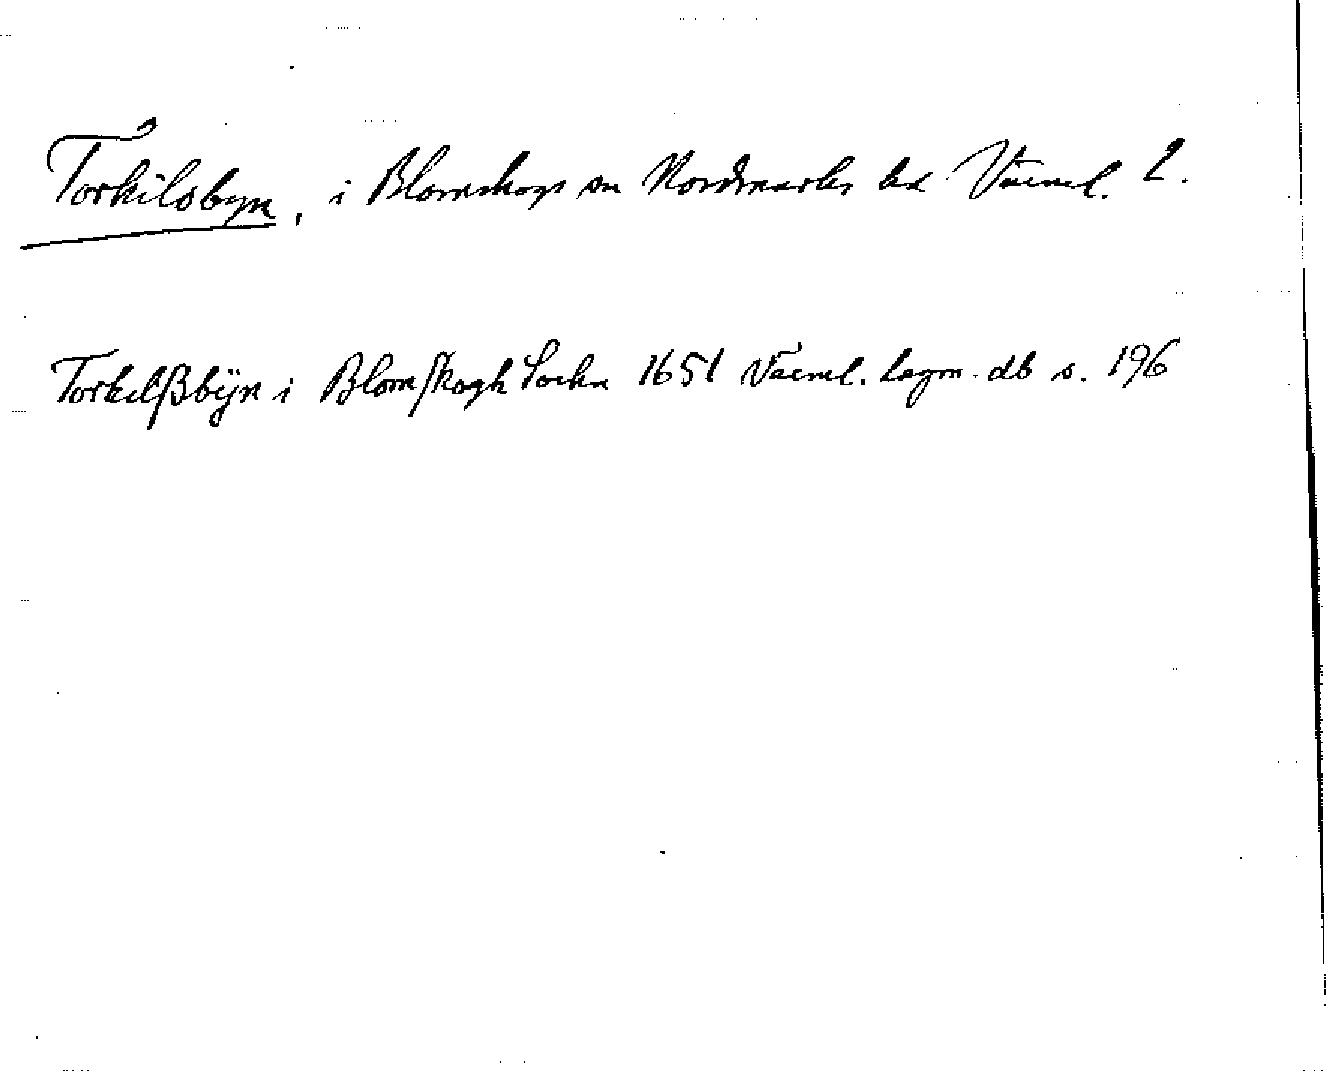 Torkilsbyn, i Blomskogs sn Nordmarks hd Värml. L.
Torkelßbÿn i Blomſkogh Sockn 1651 Värml. lagm. db s. 196